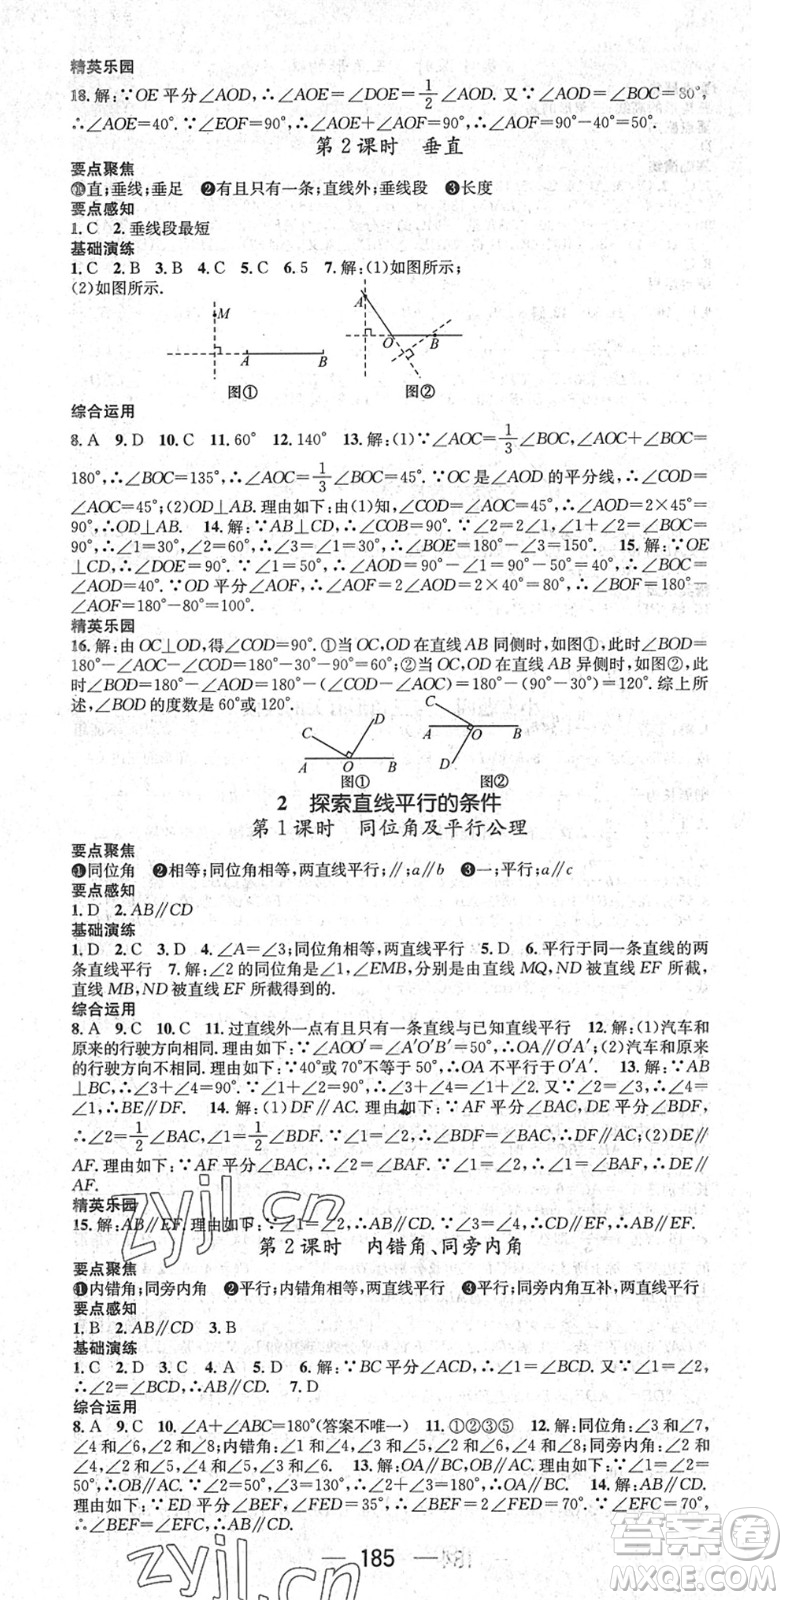 精英乐园
18. 解:∵OE平分∠AOD,∴∠AOE=∠DOE=1/2∠AOD. 又∵∠AOD=∠BOC=80°,
∴∠AOE=40°. ∵∠EOF=90°,∴∠AOE+∠AOF=90°,∴∠AOF=90°-40°=50°.
第2课时 垂直
要点聚焦
❶直;垂线;垂足 ❷有且只有一条;直线外;垂线段 ❸长度
要点感知
1. C 2. 垂线段最短
基础演练
1. C 2. B 3. B 4. C 5. C 6. 5 7. 解:(1)如图所示;
(2)如图所示.
M
A B
图①
A
O B
图②
综合运用
8. A 9. D 10. C 11. 60° 12. 140° 13. 解:(1)∵∠AOC=1/3∠BOC,∠AOC+∠BOC=
180°,∴∠BOC=135°,∴∠AOC=1/3∠BOC=45°. ∵OC是∠AOD的平分线,∴∠COD=
∠AOC=45°;(2)OD⊥AB. 理由如下:由(1)知,∠COD=∠AOC=45°,∴∠AOD=2×45°=
90°,∴OD⊥AB. 14. 解:∵AB⊥CD,∴∠COB=90°. ∵∠2=2∠1,∠1+∠2=∠BOC=
90°,∴∠1=30°,∠2=60°,∴∠3=∠1=30°,∴∠BOE=180°-∠3=150°. 15. 解:∵OE
⊥CD,∴∠EOD=90°. ∵∠1=50°,∴∠AOD=180°-90°-∠1=90°-50°=40°,∴∠BOC
=∠AOD=40°. ∵OD平分∠AOF,∴∠AOF=2∠AOD=2×40°=80°,∴∠BOF=180°-
∠AOF=180°-80°=100°.
精英乐园
16. 解:由OC⊥OD,得∠COD=90°. ①当OC,OD在直线AB同侧时,如图①,此时∠BOD=
180°-∠AOC-∠COD=180°-30°-90°=60°;②当OC,OD在直线AB异侧时,如图②,此
时∠BOD=180°-∠AOD=180°-(∠COD-∠AOC)=180°-(90°-30°)=120°. 综上所
述,∠BOD的度数是60°或120°.
C D
A O B
图①
C
A O B
D
图②
2 探索直线平行的条件
第1课时 同位角及平行公理
要点聚焦
❶同位角 ❷相等;同位角相等,两直线平行;∥;a∥b ❸一;平行;a∥c
要点感知
1. D 2. AB∥CD
基础演练
1. D 2. C 3. C 4. ∠A=∠3;同位角相等,两直线平行 5. D 6. 平行于同一条直线的两
条直线平行 7. 解:∠2的同位角是∠1,∠EMB,分别是由直线MQ,ND被直线EF所截,
直线MB,ND被直线EF所截得到的.
综合运用
8. A 9. C 10. C 11. 过直线外一点有且只有一条直线与已知直线平行 12. 解:(1)汽车和
原来的行驶方向相同. 理由如下:∵∠AOO′=∠A′O′B′=50°,∴OA∥O′A′;(2)汽车和
原来的行驶方向不相同. 理由如下:∵40°或70°不等于50°,∴OA不平行于O′A′. 13. 解:∵AB
⊥BC,∴∠3+∠4=90°. ∵∠1+∠2=90°,且∠2=∠3,∴∠1+∠3=90°,∴∠1=∠4
=∠1,∴BE∥DF. 14. 解:(1)DF∥AC. 理由如下:∵AF平分∠BAC,DF平分∠BDF,
∴∠2=1/2∠BAC,∠1=1/2∠BDF. ∵∠1=∠2,∴∠BDF=∠BAC,∴DF∥AC;(2)DE∥
AF. 理由如下:∵AF平分∠BAC,∴∠BAF=∠2. ∵∠1=∠2,∴∠1=∠BAF,∴DE∥
AF.
精英乐园
15. 解:AB∥EF. 理由如下:∵∠1=∠2,∴AB∥CD. ∵∠3=∠4,∴CD∥EF,∴AB∥EF.
第2课时 内错角、同旁内角
要点聚焦
❶内错角;同旁内角 ❷平行;内错角相等,两直线平行 ❸平行;同旁内角互补,两直线平行
要点感知
1. B 2. AB∥CD 3. B
基础演练
1. C 2. C 3. C 4. A 5. D 6. 解:∵BC平分∠ACD,∴∠1=∠BCD. 又∵∠1=∠2,
∴∠2=∠BCD,∴AB∥CD. 7. D
综合运用
8. A 9. C 10. ∠A+∠ABC=180°(答案不唯一) 11. ①②③⑤ 12. 解:同位角:∠3和∠7,
∠4和∠6,∠2和∠8;内错角:∠1和∠4,∠3和∠5,∠2和∠6,∠4和∠8;同旁内角:∠3
和∠6,∠2和∠5,∠2和∠4,∠4和∠5,∠3和∠6. 13. 解:OA∥BC,OB∥AC. ∵∠1=
50°,∠2=50°,∴∠1=∠2,∴OB∥AC. ∵∠2=50°,∠3=130°,∴∠2+∠3=180°,∴OA∥BC. 14. 解:AB∥CD.
理由如下:∵ED平分∠BEF,∠FED=35°,∴∠BEF=2∠FED=70°. ∵∠EFC=70°,
∴∠BEF=∠EFC,∴AB∥CD.
185
zyjl.cn
zyjl.cn
答案圈